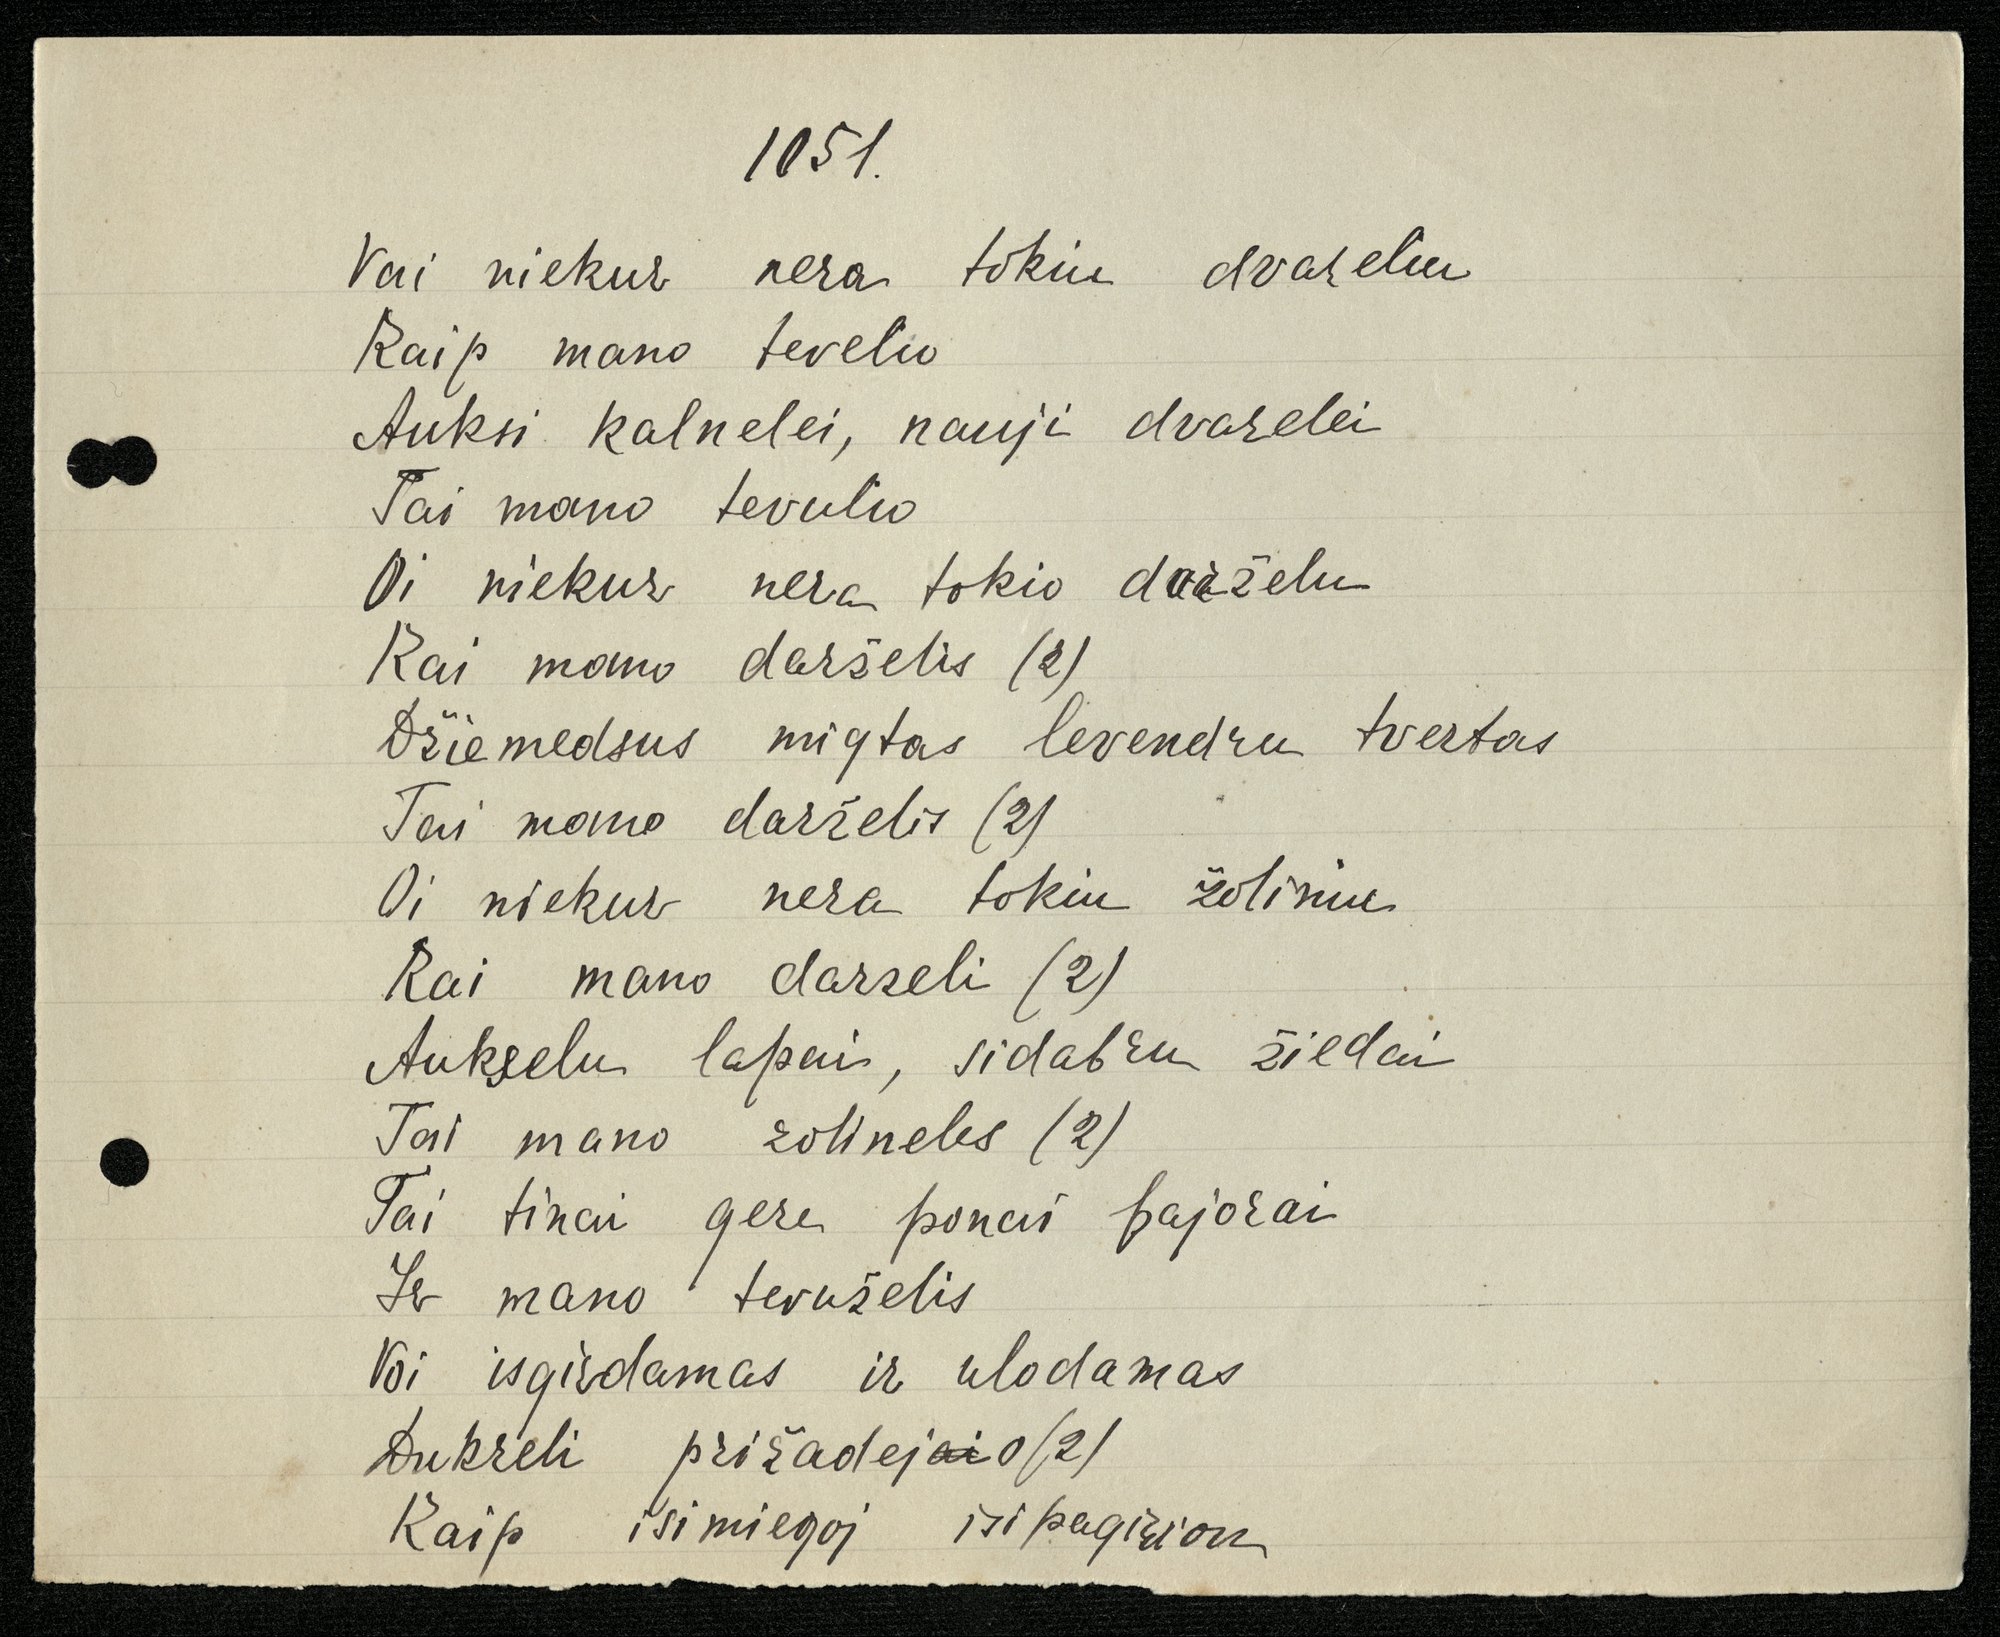 1051.
Vai niekur nera tokiu dvareliu
Kaip mano tevelio
Auksi kalnelei, nauji dvarelei
Tai mano tevulio
Oi niekur nera tokio darželu
Kai mano darželis (2)
Džiemedsus migtas levendru tvertas
Tai mano darželis (2)
Oi niekur nera tokiu žoliniu
Kai mano darzeli (2)
Aukselu lapai, sidabru žiedai
Tai mano zolineles (2)
Tai tinai gere ponai pajorai
Ir mano tevuželis
Voi isgirdamas ir ulodamas
Dukreli prižadejai o (2)
Kaip isimiegoj isipagiriou